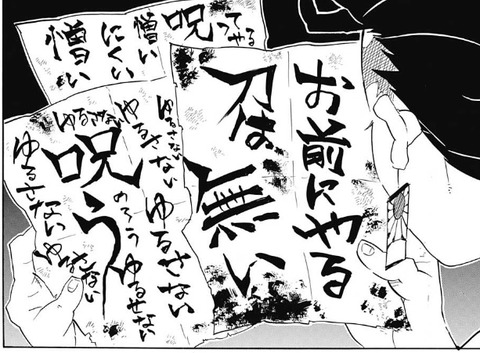 お前にやる
刀は無い
呪ってやる
憎い
にくい
憎い
ゆるさない
ゆるさない
ゆるさない
ゆるさない
ゆるさない
呪う
のろう
ゆるせない
ゆるさない
ゆるさない